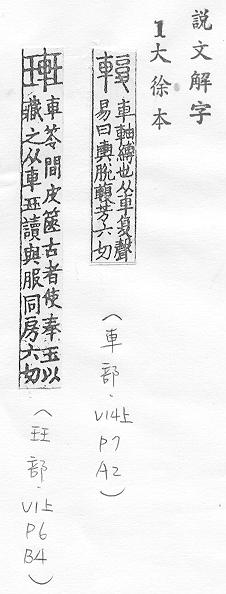 說文解字
1大徐本
輹
車軸縛也从車复聲
易曰輿脫輹芳六切
(車部.V14上
P7
A2)
車笭間皮篋古者使奉玉以
藏之从車玨讀與服同房六切
(玨部.V1上
P6
B4)